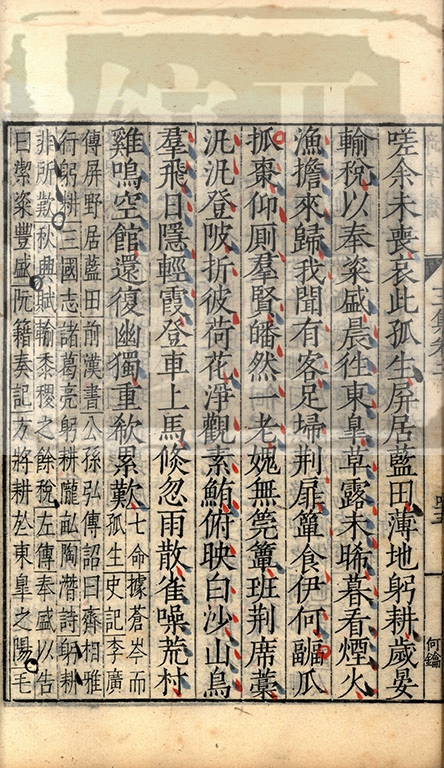 嗟余未喪哀此孤生屏居藍田薄地躬耕歲晏
輸稅以奉粢盛晨往東皐草露未晞暮看煙火
漁擔來歸我聞有客足埽荆扉簞食伊何疈瓜
抓棗仰厠羣賢皤然一老媿無莞簟班荆席藁
汎汎登陂折彼荷花淨觀素鮪俯映白沙山鳥
羣飛日隱輕霞登車上馬倐忽雨散雀噪荒村
雞鳴空館還復幽獨重欷累歎七命據蒼岑而
孤生史記李廣
傳屏野居藍田前漢書公孫弘傳詔曰齊相雅
行躬耕三國志諸葛亮躬耕隴畝陶潛詩躬耕
非所歎秋興賦輸黍稷之餘稅左傳奉盛以告
曰潔粢豐盛阮籍奏記方將耕於東皐之陽毛
何鑰